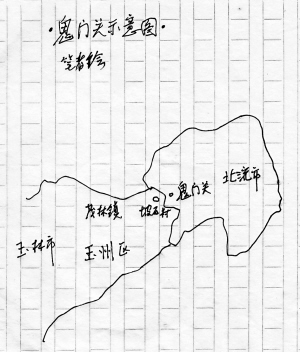 ·鬼门关示意图·
笔者绘
北流市
·鬼门关
茂林镇
坡石村
玉林市
玉州区